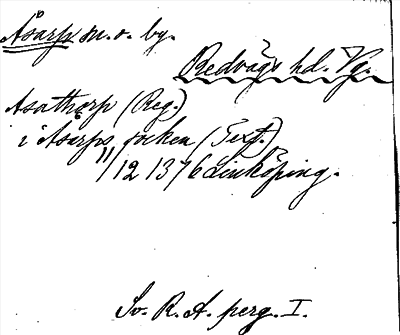 Åsarp sn. o. by.
Redvägs hd. Vg.
Asathorp (Reg.)
i Asarps socken (Text.)
11/12 1376 Linköping.
Sv. R. A. perg. I.